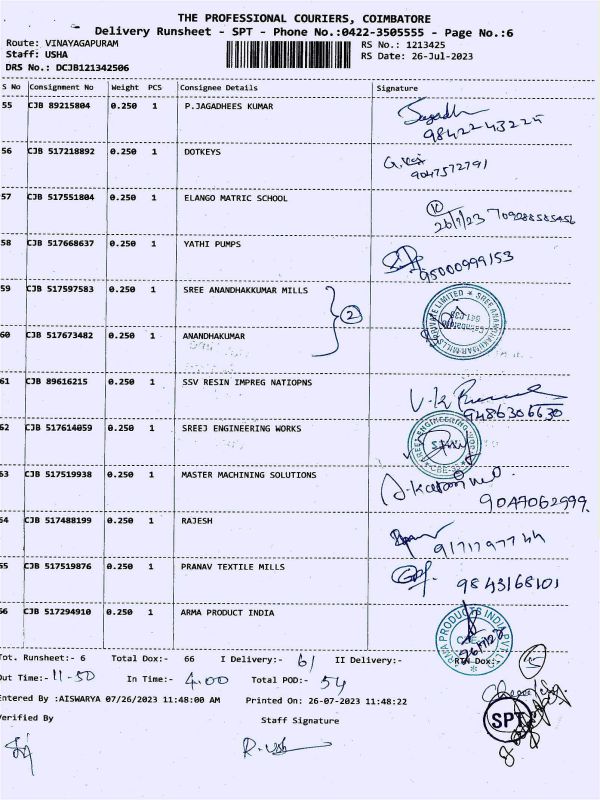 THE PROFESSIONAL COURIERS, COIMBATORE
Delivery Runsheet - SPT - Phone No.:0422-3505555 - Page No.:6
Route: VINAYAGAPURAM RS No.: 1213425
Staff: USHA RS Date: 26-Jul-2023
DRS No.: DCJB121342506
S No Consignment No Weight PCS Consignee Details Signature
55 CJB 89215804 0.250 1 P.JAGADHEES KUMAR
9842243225
56 CJB 517218892 0.250 1 DOTKEYS
9047572791
57 CJB 517551804 0.250 1 ELANGO MATRIC SCHOOL
26/7/23 709288585456
58 CJB 517668637 0.250 1 YATHI PUMPS
95000999153
59 CJB 517597583 0.250 1 SREE ANANDHAKKUMAR MILLS
2
60 CJB 517673482 0.250 1 ANANDHAKUMAR
61 CJB 89616215 0.250 1 SSV RESIN IMPREG NATIOPNS
9486306630
62 CJB 517614059 0.250 1 SREEJ ENGINEERING WORKS
63 CJB 517519938 0.250 1 MASTER MACHINING SOLUTIONS
9047062999.
64 CJB 517488199 0.250 1 RAJESH
65 CJB 517519876 0.250 1 PRANAV TEXTILE MILLS
9843168101
66 CJB 517294910 0.250 1 ARMA PRODUCT INDIA
Tot. Runsheet:- 6 Total Dox:- 66 I Delivery:- 61 II Delivery:- RTN Dox:-
Out Time:- 11-50 In Time:- 4.00 Total POD:- 54
Entered By :AISWARYA 07/26/2023 11:48:00 AM Printed On: 26-07-2023 11:48:22
Verified By Staff Signature
SPT